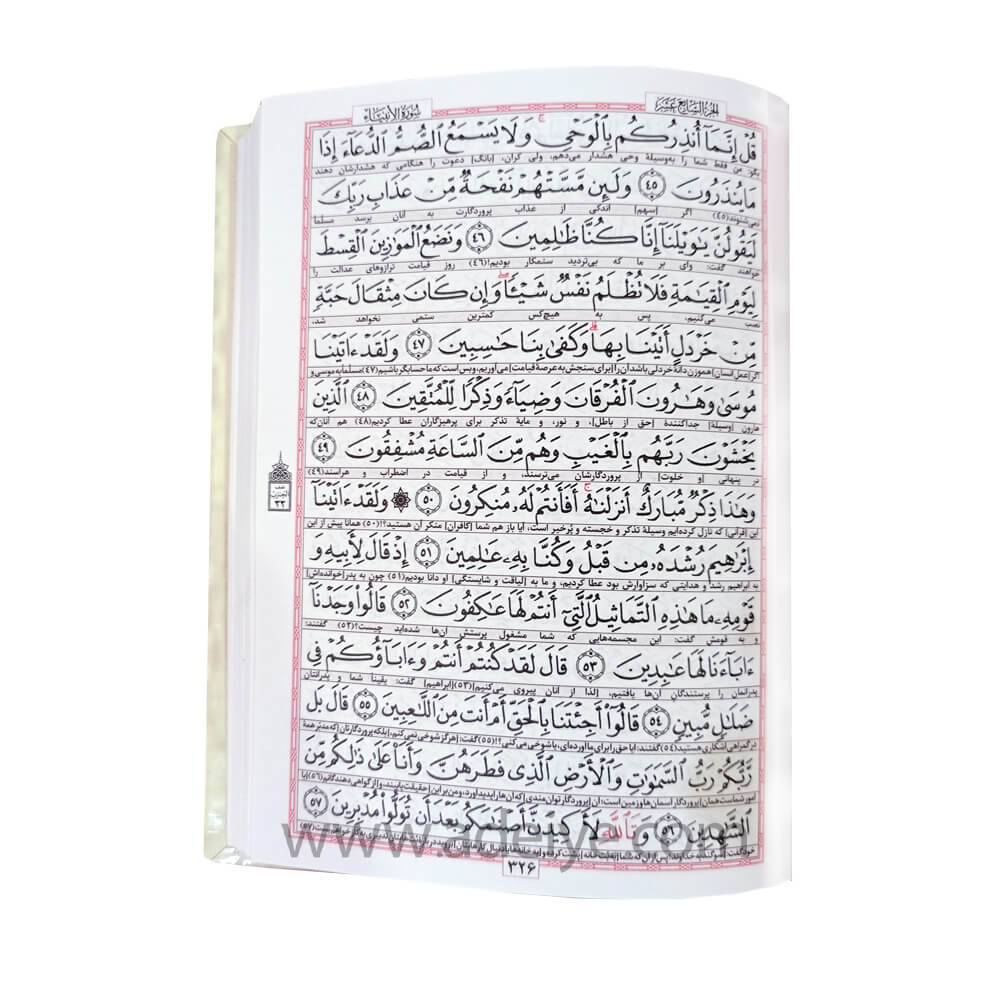 الجزء السابع عشر
سورة الأنبياء
قُلْ إِنَّمَآ أُنذِرُكُم بِٱلْوَحْىِ ۚ وَلَا يَسْمَعُ ٱلصُّمُّ ٱلدُّعَآءَ إِذَا
بگو: من فقط شما را به‌وسیلهٔ وحی هشدار می‌دهم، ولی کران، [بانگ] دعوت را هنگامی که هشدارشان دهند
مَا يُنذَرُونَ ٤٥ وَلَئِن مَّسَّتْهُمْ نَفْحَةٌ مِّنْ عَذَابِ رَبِّكَ
نمی‌شنوند(٤٥) اگر [سهم] اندکی از عذاب پروردگارت به آنان برسد مسلما
لَيَقُولُنَّ يَٰوَيْلَنَآ إِنَّا كُنَّا ظَٰلِمِينَ ٤٦ وَنَضَعُ ٱلْمَوَٰزِينَ ٱلْقِسْطَ
خواهند گفت: وای بر ما که بی‌تردید ستمکار بودیم!(٤٦) روز قیامت ترازوهای عدالت را
لِيَوْمِ ٱلْقِيَٰمَةِ فَلَا تُظْلَمُ نَفْسٌ شَيْـًٔا ۖ وَإِن كَانَ مِثْقَالَ حَبَّةٍ
نصب می‌کنیم، پس به هیچ‌کس کمترین ستمی نخواهد شد،
مِّنْ خَرْدَلٍ أَتَيْنَا بِهَا ۗ وَكَفَىٰ بِنَا حَٰسِبِينَ ٤٧ وَلَقَدْ ءَاتَيْنَا
اگر [عمل انسان] هموزن دانهٔ خردلی باشد آن را [برای سنجش به عرصهٔ قیامت] می‌آوریم، وبس است که ما حسابگر باشیم(٤٧) مسلما به موسی و
مُوسَىٰ وَهَٰرُونَ ٱلْفُرْقَانَ وَضِيَآءً وَذِكْرًا لِّلْمُتَّقِينَ ٤٨ ٱلَّذِينَ
هارون [وسیلهٔ] جداکنندهٔ [حق از باطل]، و نور، و مایهٔ تذکر برای پرهیزگاران عطا کردیم(٤٨) هم آنان‌که
يَخْشَوْنَ رَبَّهُم بِٱلْغَيْبِ وَهُم مِّنَ ٱلسَّاعَةِ مُشْفِقُونَ ٤٩
در پنهانی و [خلوت] از پروردگارشان می‌ترسند، و از قیامت در اضطراب و هراسند(٤٩)
وَهَٰذَا ذِكْرٌ مُّبَارَكٌ أَنزَلْنَٰهُ ۚ أَفَأَنتُمْ لَهُۥ مُنكِرُونَ ٥٠ ۞ وَلَقَدْ ءَاتَيْنَآ
این [قرآنی] که نازل کرده‌ایم وسیلهٔ تذکر و خجسته و پُرخیر است، آیا باز هم شما [کافران] منکر آن هستید؟!(٥٠) همانا پیش از این
إِبْرَٰهِيمَ رُشْدَهُۥ مِن قَبْلُ وَكُنَّا بِهِۦ عَٰلِمِينَ ٥١ إِذْ قَالَ لِأَبِيهِ وَ
به ابراهیم رشد و هدایتی که سزاوارش بود عطا کردیم، و ما به [لیاقت و شایستگی] او دانا بودیم(٥١) چون به پدر[خوانده‌اش]
قَوْمِهِۦ مَا هَٰذِهِ ٱلتَّمَاثِيلُ ٱلَّتِىٓ أَنتُمْ لَهَا عَٰكِفُونَ ٥٢ قَالُوا۟ وَجَدْنَآ
و به قومش گفت: این مجسمه‌هایی که شما مشغول پرستش آن‌ها شده‌اید چیست؟(٥٢) گفتند:
ءَابَآءَنَا لَهَا عَٰبِدِينَ ٥٣ قَالَ لَقَدْ كُنتُمْ أَنتُمْ وَءَابَآؤُكُمْ فِى
پدرانمان را پرستندگان آن‌ها یافتیم، [لذا از آنان پیروی می‌کنیم](٥٣)[ابراهیم] گفت: یقینا شما و پدرانتان
ضَلَٰلٍ مُّبِينٍ ٥٤ قَالُوٓا۟ أَجِئْتَنَا بِٱلْحَقِّ أَمْ أَنتَ مِنَ ٱللَّٰعِبِينَ ٥٥ قَالَ بَل
در گمراهی آشکاری هستید(٥٤) گفتند: آیا حق را برای ما آورده‌ای، یا شوخی می‌کنی؟!(٥٥) گفت: [هرگز شوخی نمی‌کنم،] بلکه پروردگارتان که مدبر همهٔ
رَّبُّكُمْ رَبُّ ٱلسَّمَٰوَٰتِ وَٱلْأَرْضِ ٱلَّذِى فَطَرَهُنَّ وَأَنَا۠ عَلَىٰ ذَٰلِكُم مِّنَ
امور شماست همان [پروردگار آسمان‌ها و زمین است؛ آن [پروردگار توان‌مندی] که آن‌ها را پدید آورد، ومن بر این [حقیقت] پایبند، و از گواهی دهندگانم(٥٦)
ٱلشَّٰهِدِينَ ٥٦ وَتَٱللَّهِ لَأَكِيدَنَّ أَصْنَٰمَكُم بَعْدَ أَن تُوَلُّوا۟ مُدْبِرِينَ ٥٧
www.adeliye.com
٣٢٦
نصف
الحزب
٣٣